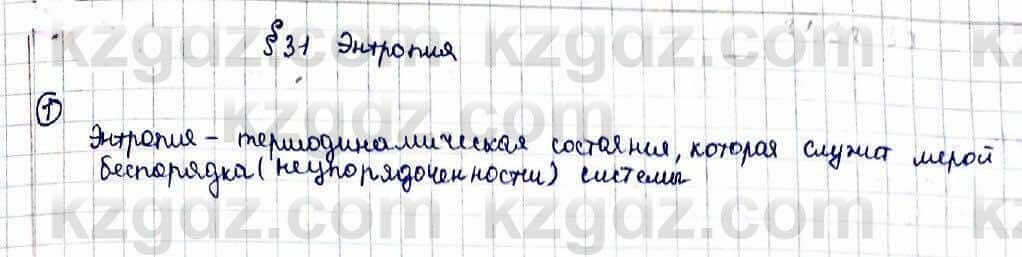 § 31 Энтропия
1
Энтропия - термодинамическая состояния, которая служит мерой
беспорядка (неупорядоченности) системы
kzgdz.com kzgdz.com
kzgdz.com
kzgdz.com kzgdz.com